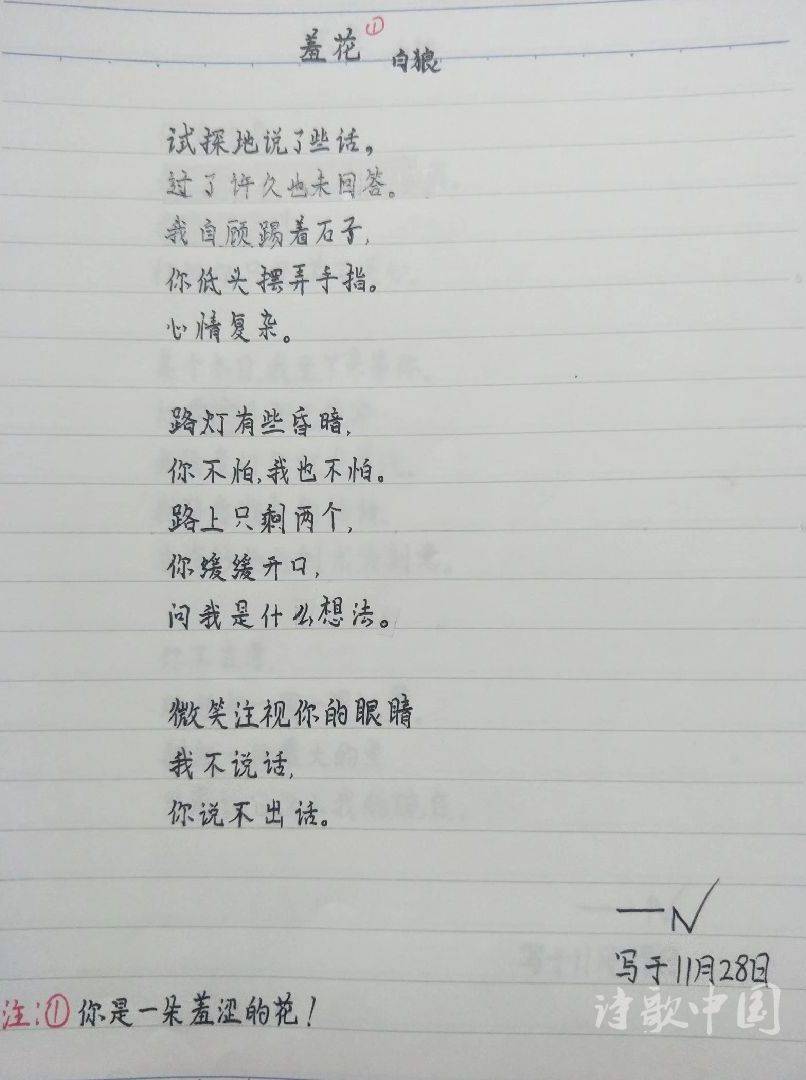 羞花①
白狼
试探地说了些话，
过了许久也未回答。
我自顾踢着石子，
你低头摆弄手指。
心情复杂。
路灯有些昏暗，
你不怕，我也不怕。
路上只剩两个，
你缓缓开口，
问我是什么想法。
微笑注视你的眼睛
我不说话，
你说不出话。
写于11月28日
注：①你是一朵羞涩的花！
诗歌中国